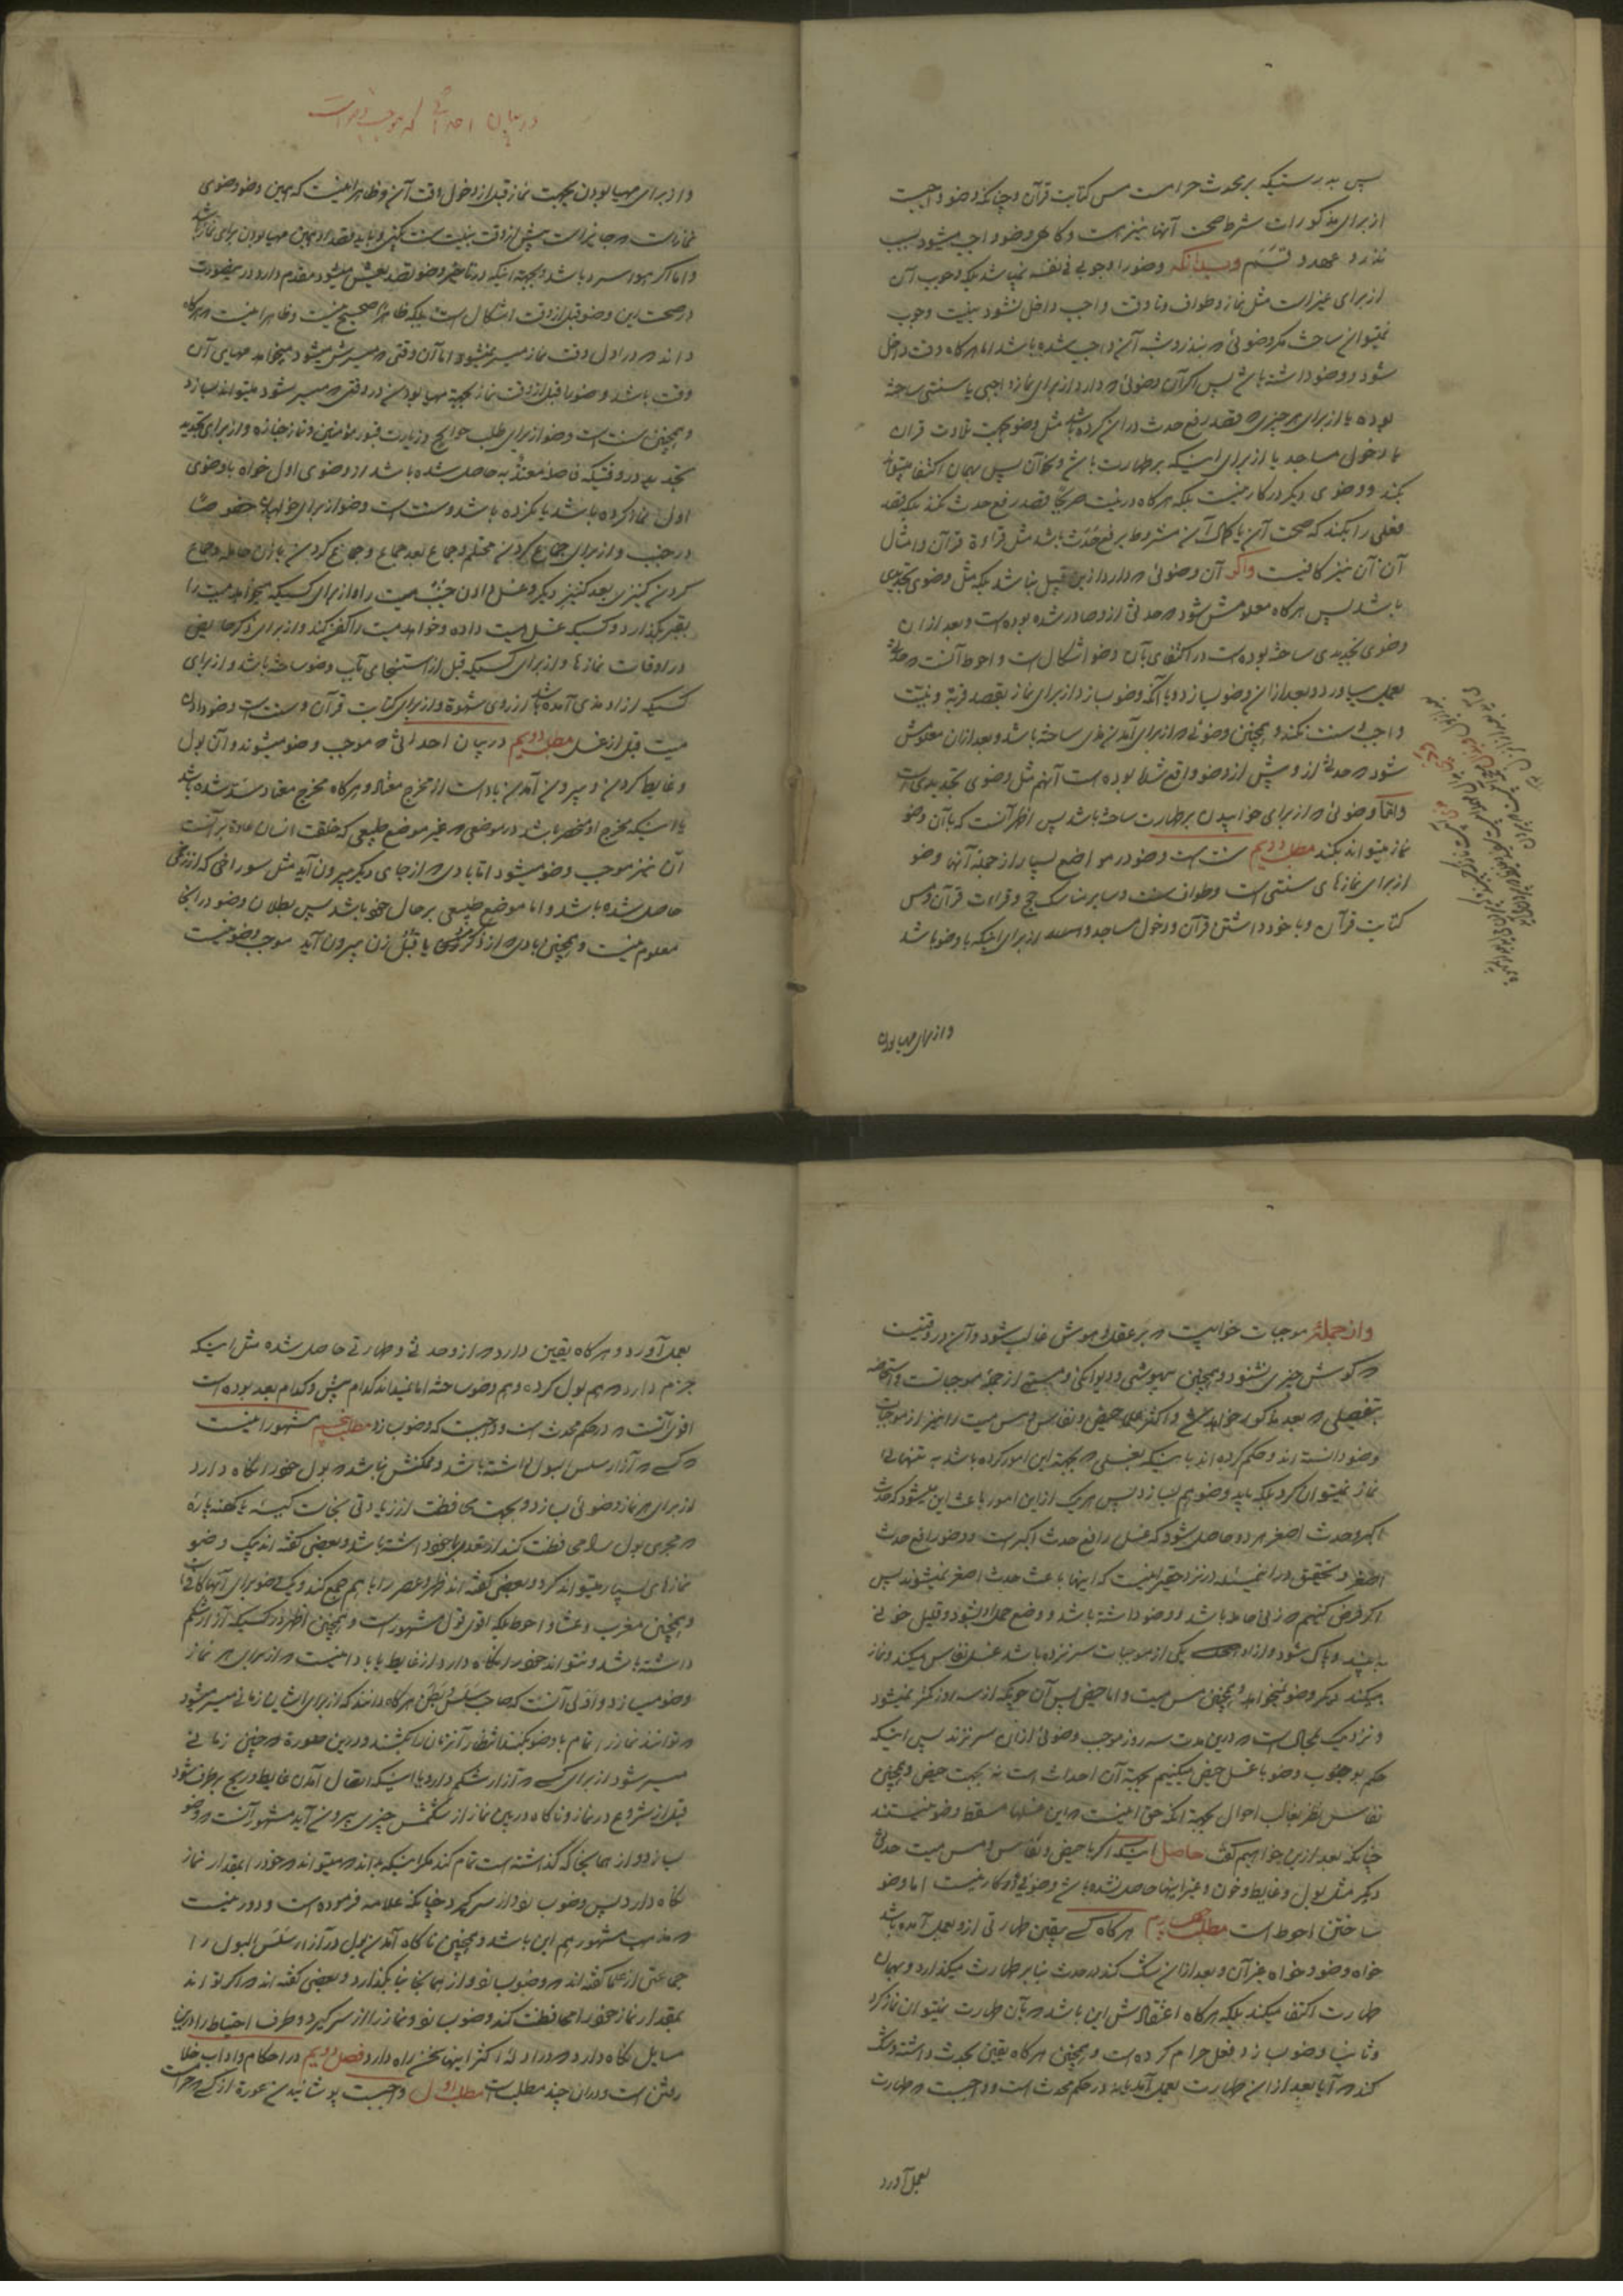 پس بدرستیکه بر محدث حرامست مس کتابت قرآن و چنانکه وضو واجبست
از برای مذکورات شرط صحت آنها نیز هست و کاهی وضو واجب میشود بسبب
نذر و عهد و قسم و بدانکه وضو را وجوبی فی نفسه نمیباشد بلکه وجوب آن
از برای غیر است مثل نماز و طواف و تا وقت واجب داخل نشود بنیت وجوب
نمیتوان ساخت مکر وضوئی که بنذر و شبه آن واجب شده باشد اما هرکاه وقت داخل
شود و وضو داشته باشد پس اکر آن وضوئی که دارد از برای نماز واجبی یا سنتی ساخته
بوده یا از برای هر چیزی که قصد رفع حدث در آن کرده باشد مثل وضو بجهت تلاوت قرآن
یا دخول مساجد یا از برای اینکه بر طهارت باشد و نحو آن پس بهمان اکتفا میتواند
بکند و وضوی دیکر در کار نیست بلکه هرکاه در نیت صریحا قصد رفع حدث نکند بلکه قصد
فعلی را بکند که صحت آن یا کمال آن مشروط برفع حدث باشد مثل قراءة قرآن و امثال
آن آن نیز کافیست و اکر آن وضوئی که دارد ازین قبیل نباشد بلکه مثل وضوی تجدیدی
باشد پس هرکاه معلومش شود که حدثی ازو صادر شده بوده است و بعد از آن
وضوی تجدیدی ساخته بوده است در اکتفای بآن وضو اشکال است و احوط آنست که حدثی
بعمل بیاورد و بعد از آن وضو بسازد و یا آنکه وضو بسازد از برای نماز بقصد قربة و نیت
واجب و سنت نکند و همچنین وضوئی که از برای آمدن مذی ساخته باشد و بعد از آن معلومش
شود که حدثی ازو پیش از وضو واقع شده بوده است آنهم مثل وضوی تجدیدی است
و اما وضوئی که از برای خوابیدن بر طهارت ساخته باشد پس اظهر آنست که بآن وضو
نماز میتواند بکند مطلب دویم سنت است وضو در مواضع بسیار از جمله آنها وضو
از برای نمازهای سنتی است و طواف سنت و سایر مناسک حج و قرائت قرآن و مس
کتابت قرآن و با خود داشتن قرآن و دخول مساجد و از برای اینکه با وضو باشد
و از برای مهیا بودن
در بیان احداثی که موجب وضو است
و از برای مهیا بودن بجهت نماز قبل از دخول وقت آن و ظاهر اینست که همین وضو وضوی
و اما اکر هوا سرد باشد و بجهة اینکه در تاخیر وضو تصدیعش میشود مقدم دارد درینصورت
در صحت این وضو قبل از وقت اشکال است بلکه ظاهرا صحیح نیست و ظاهر اینست که هرکاه
داند که در اول وقت نماز میسر نمیشود اما آن وقتی که میسرش میشود میخواهد مهیای آن
وقت باشد وضو را قبل از وقت نماز بجهة مهیا بودن در وقتی که میسر شود میتواند بسازد
و همچنین سنت است وضو از برای طلب حوایج و زیارت قبور مؤمنین و نماز جنازه و از برای تجدید
تجدید در وقتیکه فاصله معتد به حاصل شده باشد از وضوی اول خواه با وضوی
اول نماز کرده باشد یا نکرده باشد و سنت است وضو از برای خوابیدن خصوصا
در جنب و از برای جماع کردن محتلم و جماع بعد جماع و جماع کردن با زن حامله و جماع
کردن کنیزی بعد کنیز دیکر و غسل دادن جنب میت را و از برای کسیکه میخواهد میت را
بقبر بکذارد و کسیکه غسل میت داده و خواهد میت را کفن کند و از برای ذکر حایض
در اوقات نمازها و از برای کسیکه قبل از استنجای بآب وضو ساخته باشد و از برای
کسیکه ازو مذی آمده باشد از روی شهوة و از برای کتابت قرآن و سنت است وضو دادن
میت قبل از غسل مطلب دویم در بیان احداثی که موجب وضو میشوند و آن بول
و غایط کردن و بیرون آمدن باد است از مخرج معتاد و هرکاه مخرج معتاد بسته شده باشد
یا اینکه مخرج او منحصر باشد در موضعی که غیر موضع طبیعی که خلقت انسان عادة بر آنست
آن نیز موجب وضو میشود اما بادی که از جای دیکر بیرون آید مثل سوراخی که از زخمی
حاصل شده باشد و اما موضع طبیعی بر حال خود باشد پس بطلان وضو در اینجا
معلوم نیست و همچنین بادی که از ذکر مرد یا قبل زن بیرون آید موجب وضو نیست
و از جمله موجبات خوابیست که بر عقل و هوش غالب شود و آن در وقتیست
که کوش چیزی نشنود و همچنین بیهوشی و دیوانکی و مستی از جمله موجباتست و استحاضه
بتفصیلی که بعد مذکور خواهد شد و اکثر علما حیض و نفاس و مس میت را نیز از موجبات
وضو دانسته اند و حکم کرده اند باینکه بغسلی که بجهة این امور کرده باشد به تنهائی
نماز نمیتوان کرد بلکه باید وضو هم بسازد پس هریک ازین امور باعث این میشود که حدث
اکبر و حدث اصغر هر دو حاصل شود که غسل رافع حدث اکبر است و وضو رافع حدث
اصغر و تحقیق در این مسئله در نزد حقیر اینست که اینها باعث حدث اصغر نمیشوند پس
اکر فرض کنیم که زنی حامله باشد و وضو داشته باشد و وضع حمل او بشود و قلیل خونی
به بیند و پاک شود و ازو یکی از موجبات سر نزده باشد غسل نفاس میکند و نماز
میکند دیکر وضو نمیخواهد و همچنین مس میت و اما حیض پس آن چونکه از سه روز کمتر نمیشود
و نزدیک بمحال است که درین مدت سه روز موجب وضوئی از آن سر نزند پس اینکه
حکم بوجوب وضو با غسل حیض میکنیم بجهة آن احداث است نه بجهت حیض و همچنین
نفاس نظر بغالب احوال بجهة آنکه حق اینست که این غسلها مسقط وضو نیستند
چنانکه بعد ازین خواهیم کفت حاصل اینکه اکر با حیض و نفاس و مس میت حدثی
دیکر مثل بول و غایط و خون و غیر اینها حاصل نشده باشد وضوئی در کار نیست اما وضو
ساختن احوط است مطلب چهارم هرکاه کسی بیقین طهارتی ازو بعمل آمده باشد
خواه وضو و خواه غیر آن و بعد از آن شک کند در حدث بنا بر طهارت میکذارد و بهمان
طهارت اکتفا میکند بلکه هرکاه اعتقادش این باشد که بآن طهارت نمیتوان نماز کرد
و ثانیا وضو بسازد فعل حرام کرده است و همچنین هرکاه یقین بحدث داشته و شک
کند که آیا بعد از آن طهارت بعمل آمده یا نه در حکم محدث است و واجبست که طهارت
بعمل آورد
بعمل آورد و هرکاه یقین دارد که ازو حدثی و طهارتی حاصل شده مثل اینکه
جزم دارد که هم بول کرده و هم وضو ساخته اما نمیداند کدام پیش و کدام بعد بوده است
اقوی آنست که در حکم محدث است و واجبست که وضو بسازد مطلب پنجم مشهور اینست
که کسی که آزار سلس البول داشته باشد و ممکنش نباشد که بول خود را نکاه دارد
از برای هر نماز وضوئی بسازد و بجهت محافظت از زیادتی نجاست کیسه یا کهنه پاره
که مجرای بول را محافظت کند از تعدی با خود داشته باشد و بعضی کفته اند بیک وضو
نمازهای بسیار میتواند کرد و بعضی کفته اند ظهر و عصر را با هم جمع کند و یک وضو برای آنها کافیست
و همچنین مغرب و عشا و احوط بلکه اقوی قول مشهور است و همچنین اظهر در کسیکه آزار شکم
داشته باشد و نتواند خود را نکاه دارد از غایط یا باد اینست که از برای هر نماز
وضو بسازد و اولی آنست که صاحب سلس و بطن هرکاه دانند که از برای ایشان زمانی میسر میشود
که توانند نماز را تمام با وضو بکنند انتظار آنزمان را بکشند و درین صورة که چنین زمانی
میسر شود از برای کسی که آزار شکم دارد با اینکه انتقال آمدن غایط و ریح برطرف شود
قبل از شروع در نماز و ناکاه در بین نماز از شکمش چیزی بیرون آید مشهور آنست که وضو
بسازد و از همانجا که کذاشته است تمام کند مکر اینکه بداند که میتواند که خود را بمقدار نماز
نکاه دارد پس وضو بسازد و از سر کیرد چنانکه علامه فرموده است و دور نیست
که مذهب مشهور هم این باشد و همچنین ناکاه آمدن بول در آزار سلس البول را
جماعتی از علما کفته اند که وضو بسازد و از همانجا بنا بکذارد و بعضی کفته اند که اکر تواند
بمقدار نماز خود را محافظت کند وضو بسازد و نماز را از سر کیرد و طرف احتیاط را درین
مسایل نکاه دارد که در ادله اکثر اینها سخن راه دارد فصل دویم در احکام و آداب خلا
رفتن است و در آن چند مطلب است مطلب اول واجبست پوشانیدن عورة از کسی که حرامست